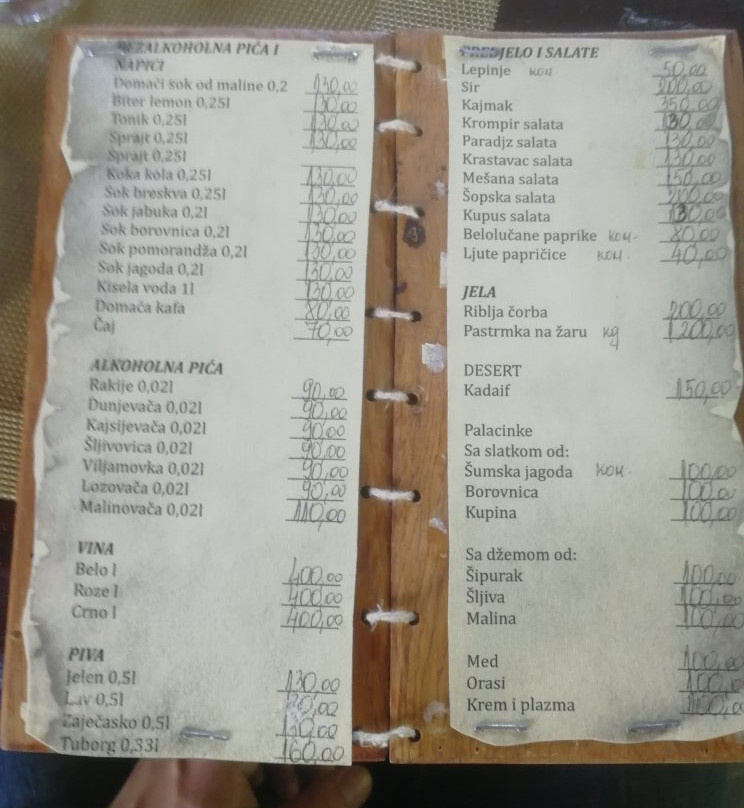 BEZALKOHOLNA PIĆA I
NAPICI
Domaći sok od maline 0,2 130,00
Biter lemon 0,25l 130,00
Tonik 0,25l 130,00
Sprajt 0,25l 130,00
Sprajt 0,25l
Koka kola 0,25l 130,00
Sok breskva 0,25l 130,00
Sok jabuka 0,2l 130,00
Sok borovnica 0,2l 130,00
Sok pomorandža 0,2l 130,00
Sok jagoda 0,2l 130,00
Kisela voda 1l 130,00
Domaća kafa 80,00
Čaj 70,00
ALKOHOLNA PIĆA
Rakije 0,02l 90,00
Dunjevača 0,02l 90,00
Kajsijevača 0,02l 90,00
Šljivovica 0,02l 90,00
Viljamovka 0,02l 90,00
Lozovača 0,02l 90,00
Malinovača 0,02l 110,00
VINA
Belo l 400,00
Roze l 400,00
Crno l 400,00
PIVA
Jelen 0,5l 130,00
Lav 0,5l 130,00
Zaječasko 0,5l 130,00
Tuborg 0,33l 160,00
PREDJELO I SALATE
Lepinje ком 50,00
Sir 200,00
Kajmak 350,00
Krompir salata 130,00
Paradjz salata 130,00
Krastavac salata 130,00
Mešana salata 150,00
Šopska salata 200,00
Kupus salata 130,00
Belolučane paprike ком. 80,00
Ljute papričice ком. 40,00
JELA
Riblja čorba 200,00
Pastrmka na žaru kg 1200,00
DESERT
Kadaif 150,00
Palacinke
Sa slatkom od:
Šumska jagoda ком. 100,00
Borovnica 100,00
Kupina 100,00
Sa džemom od:
Šipurak 100,00
Šljiva 100,00
Malina 100,00
Med 100,00
Orasi 100,00
Krem i plazma